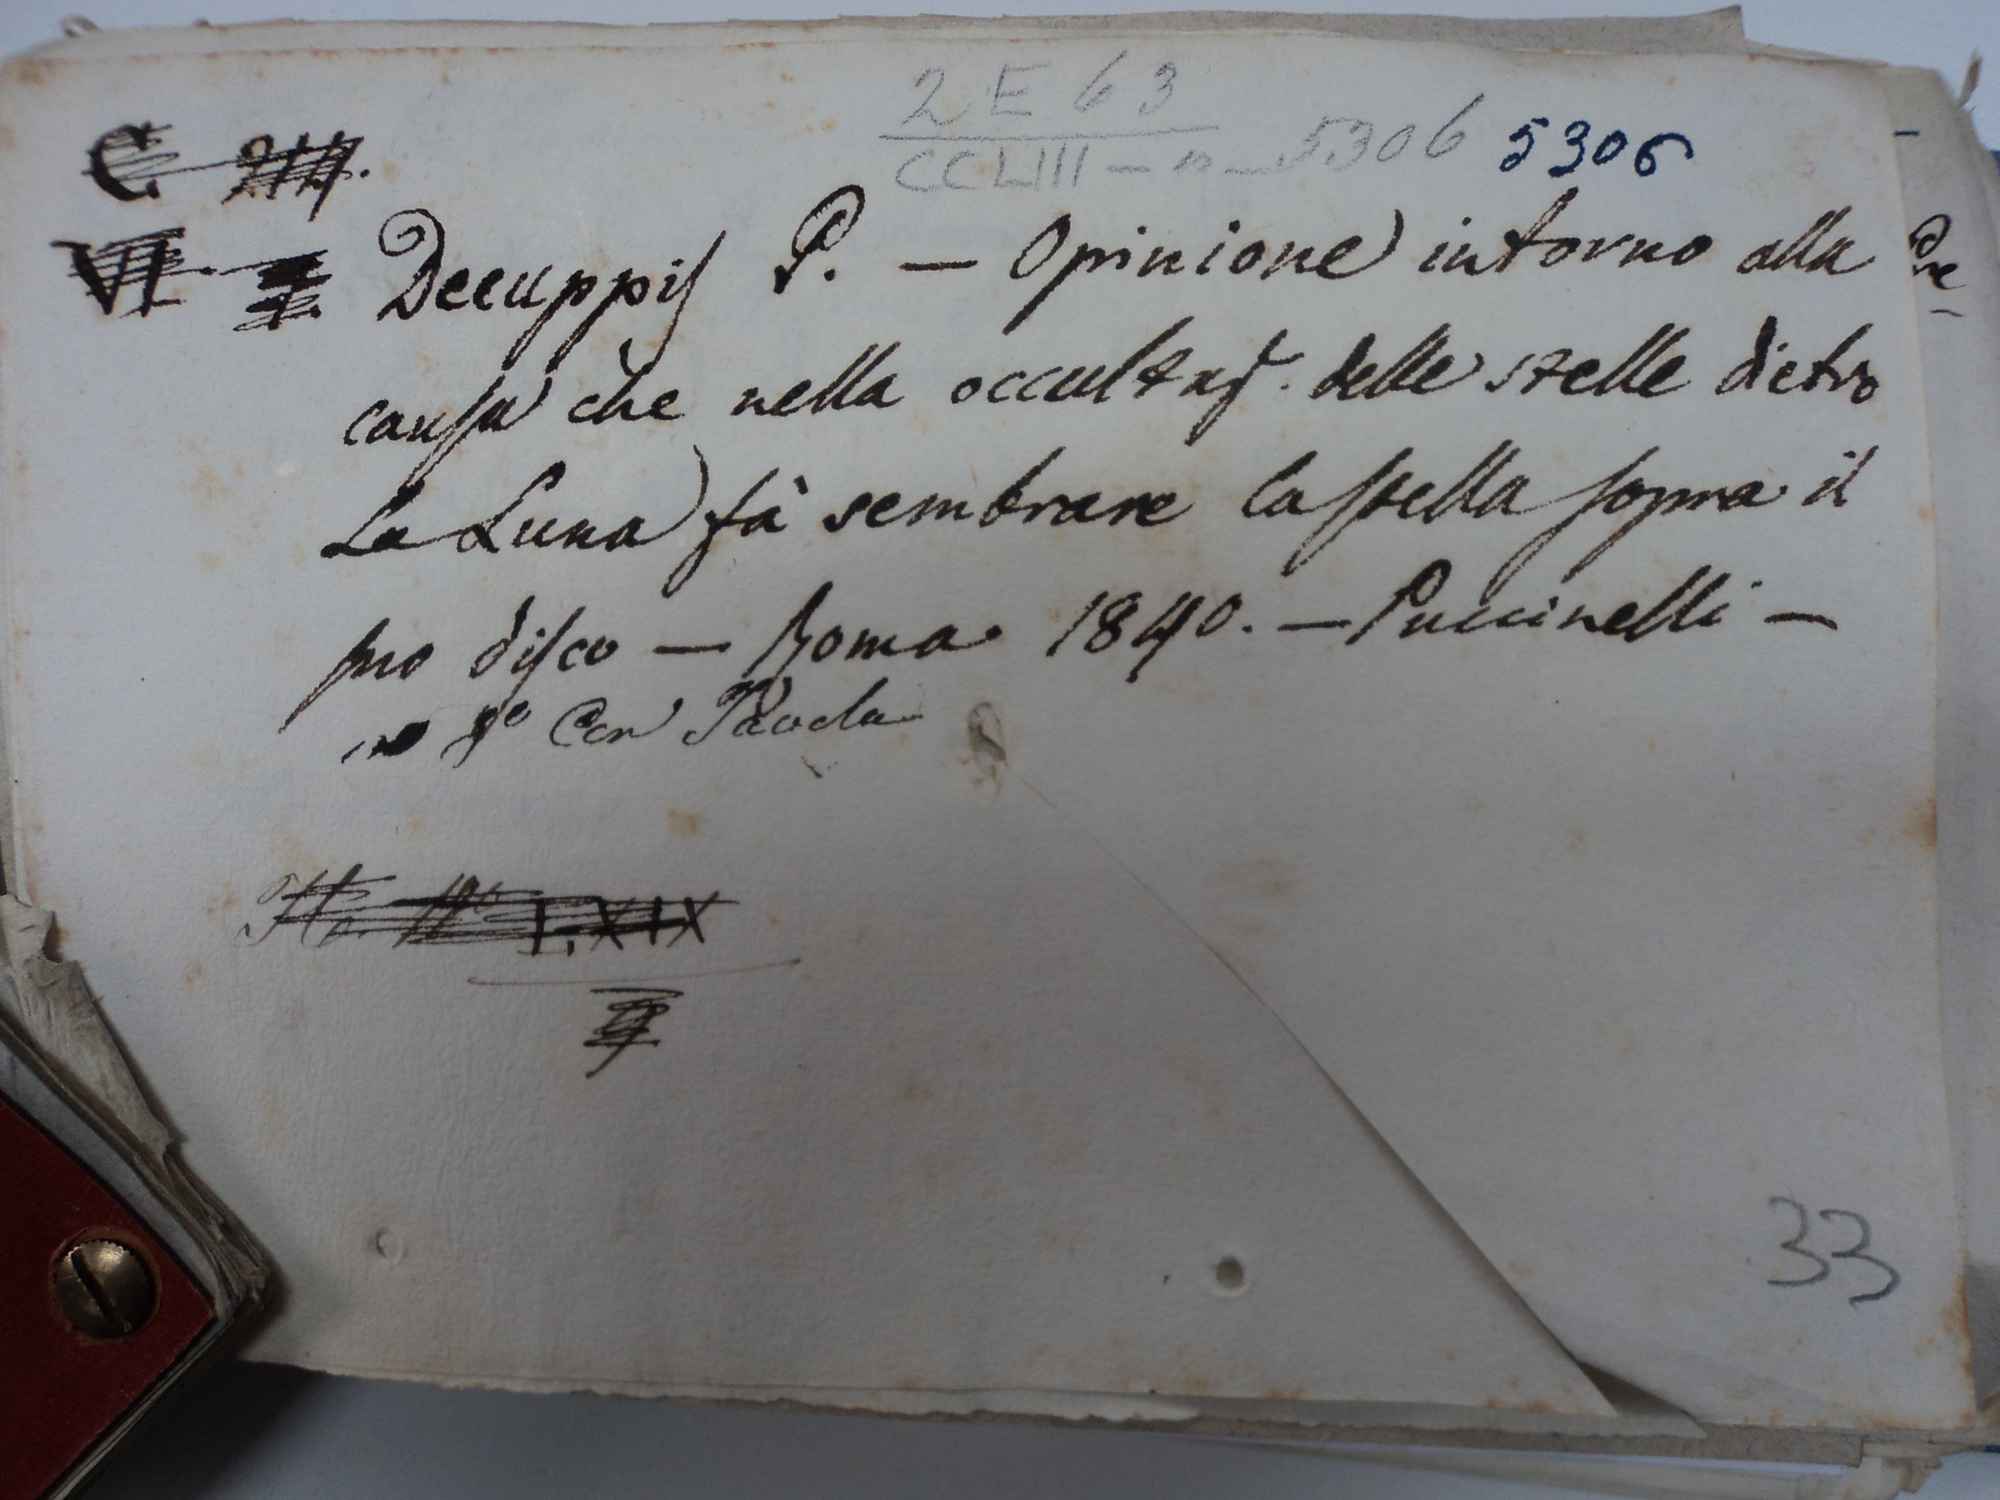 2 E 63
CCLIII - n - 5306 5306
C 214.
VI Decuppis P. — Opinione intorno alla
causa che nella occultaz. delle stelle dietro
la Luna fà sembrare la stella sopra il
suo disco — Roma 1840. — Puccinelli —
in 8° Con Tavola
LXIX
33